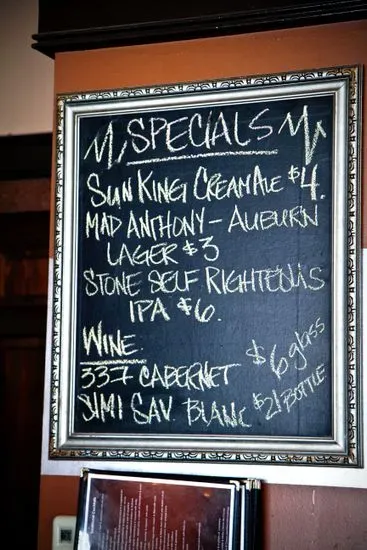 SPECIALS
SUN KING CREAM ALE $4.
MAD ANTHONY - AUBURN
LAGER $3
STONE SELF RIGHTEOUS
IPA $6.
WINE.
337 CABERNET $6 glass
SIMI SAV BLANC $21 BOTTLE